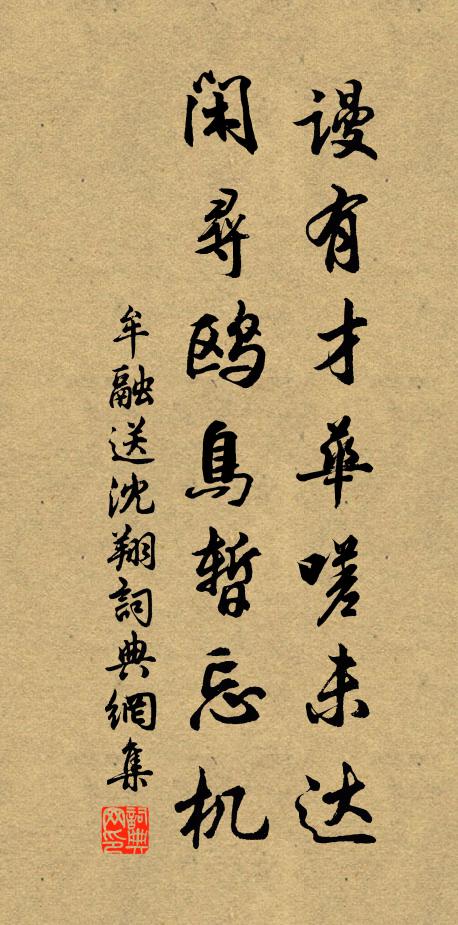 谩有才华嗟未达
闲寻鸥鸟暂忘机
牟融送沈翔词典网集
词典网印